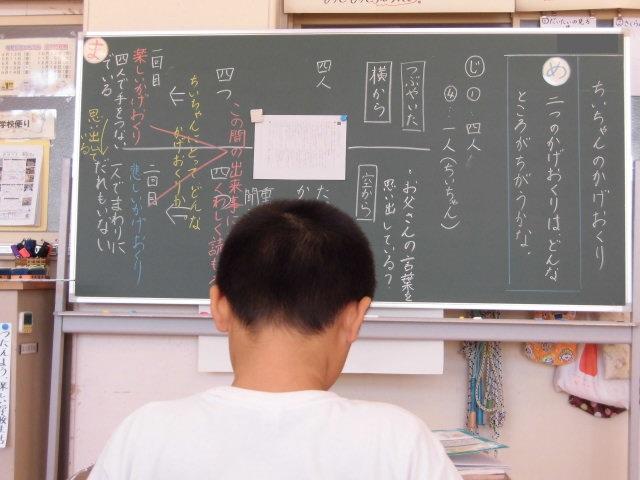 ちいちゃんのかげおくり
め
二つのかげおくりは、どんな
ところがちがうかな。
じ① 四人
④ 一人(ちいちゃん)
つぶやいた
・お父さんの言葉を
思い出している?
横から
空から
四人
四つ
この間の出来事に
四くわしく読も
ちいちゃんにとってどんな
かげおくりか
ま
一回目
楽しいかげおくり
四人で手をつない
でいる
思い出して
いる
二回目
悲しいかげおくり
一人でまわりに
だれもいない
学校便り